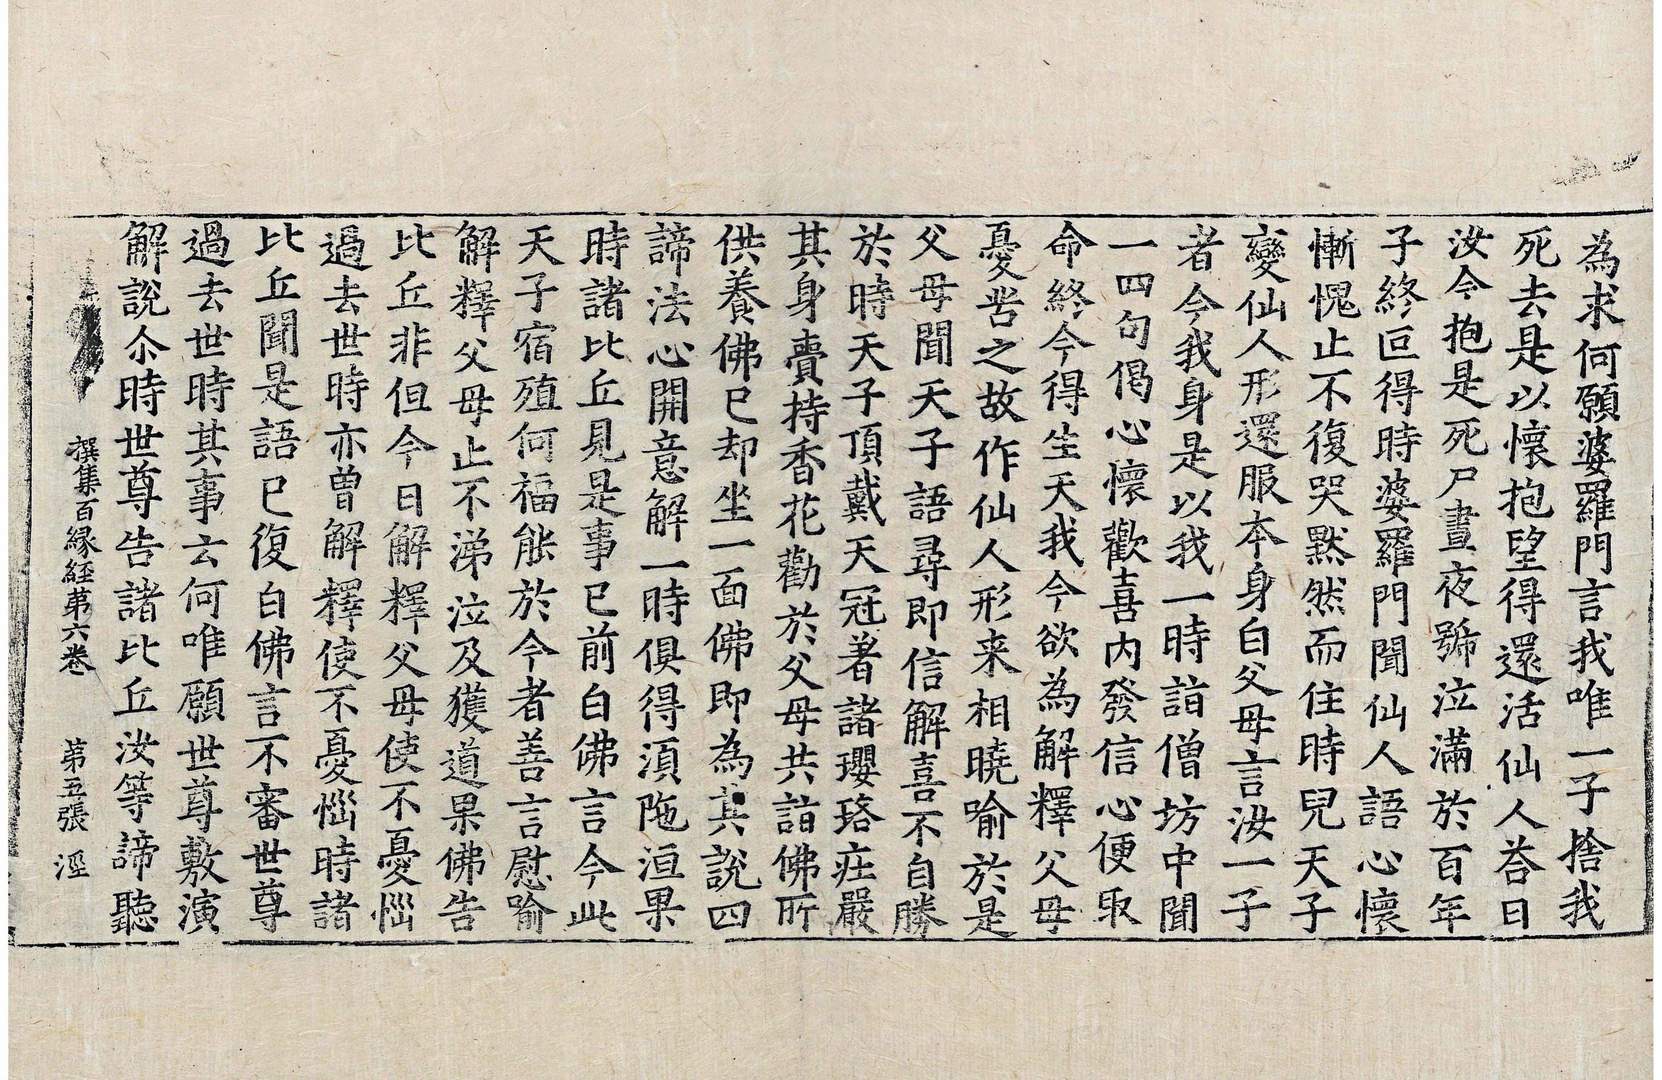 為求何願婆羅門言我唯一子捨我
死去是以懷抱望得還活仙人荅曰
汝今抱是死尸晝夜號泣滿於百年
子終叵得時婆羅門聞仙人語心懷
慚愧止不復哭黙然而住時兒天子
變仙人形還服本身白父母言汝一子
者今我身是以我一時詣僧坊中聞
一四句偈心懷歡喜內發信心便取
命終今得生天我今欲為解釋父母
憂苦之故作仙人形来相曉喻於是
父母聞天子語尋即信解喜不自勝
於時天子頂戴天冠著諸瓔珞庄嚴
其身賷持香花勸於父母共詣佛所
供養佛已却坐一面佛即為其說四
諦法心開意解一時俱得湏陁洹果
時諸比丘見是事已前白佛言今此
天子宿殖何福能於今者善言慰喻
解釋父母止不涕泣及獲道果佛告
比丘非但今日解釋父母使不憂惱
過去世時亦曾解釋使不憂惱時諸
比丘聞是語已復白佛言不審世尊
過去世時其事云何唯願世尊敷演
解說尒時世尊告諸比丘汝等諦聽
撰集百縁経苐六卷 苐五張 涇